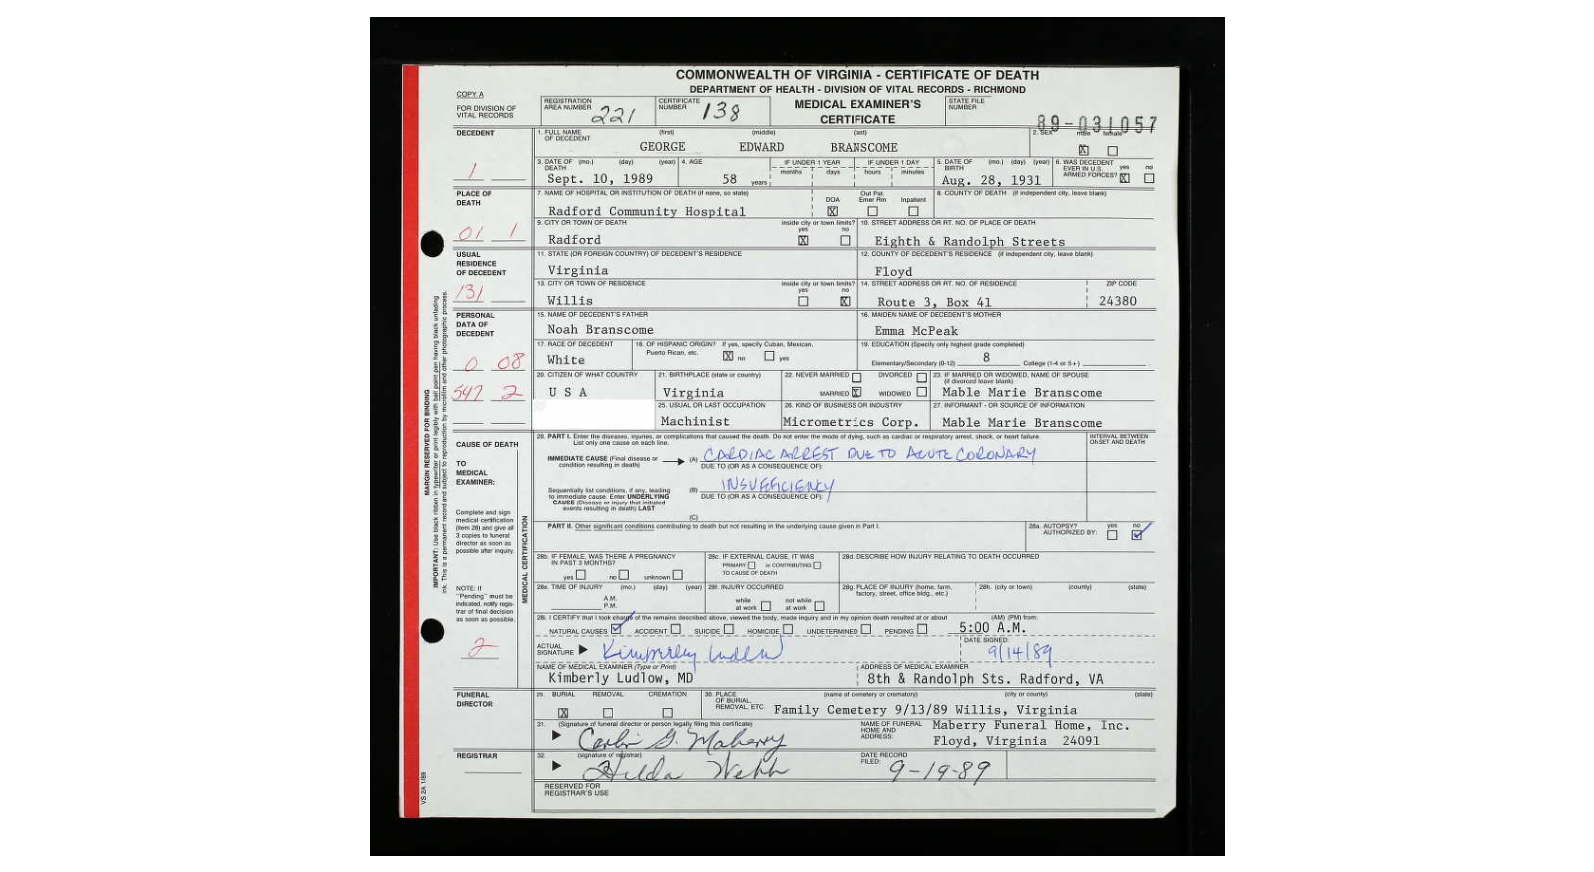 COMMONWEALTH OF VIRGINIA - CERTIFICATE OF DEATH
DEPARTMENT OF HEALTH - DIVISION OF VITAL RECORDS - RICHMOND
COPY A
FOR DIVISION OF VITAL RECORDS
REGISTRATION AREA NUMBER 221
CERTIFICATE NUMBER 138
MEDICAL EXAMINER'S CERTIFICATE
STATE FILE NUMBER 89-031057
DECEDENT
1. FULL NAME OF DECEDENT (first) (middle) (last)
GEORGE EDWARD BRANSCOME
2. SEX male female X
3. DATE OF DEATH (mo.) (day) (year)
Sept. 10, 1989
4. AGE 58 years
IF UNDER 1 YEAR months days
IF UNDER 1 DAY hours minutes
5. DATE OF BIRTH (mo.) (day) (year)
Aug. 28, 1931
6. WAS DECEDENT EVER IN U.S. ARMED FORCES? yes no X
1
PLACE OF DEATH
7. NAME OF HOSPITAL OR INSTITUTION OF DEATH (if none, so state)
Radford Community Hospital
DOA X Out Pat. Emer Rm Inpatient
8. COUNTY OF DEATH (if independent city, leave blank)
9. CITY OR TOWN OF DEATH
Radford
inside city or town limits? yes no X
10. STREET ADDRESS OR RT. NO. OF PLACE OF DEATH
Eighth & Randolph Streets
01 1
USUAL RESIDENCE OF DECEDENT
11. STATE (OR FOREIGN COUNTRY) OF DECEDENT'S RESIDENCE
Virginia
12. COUNTY OF DECEDENT'S RESIDENCE (if independent city, leave blank)
Floyd
13. CITY OR TOWN OF RESIDENCE
Willis
inside city or town limits? yes no X
14. STREET ADDRESS OR RT. NO. OF RESIDENCE
Route 3, Box 41
ZIP CODE
24380
131
PERSONAL DATA OF DECEDENT
15. NAME OF DECEDENT'S FATHER
Noah Branscome
16. MAIDEN NAME OF DECEDENT'S MOTHER
Emma McPeak
17. RACE OF DECEDENT
White
18. OF HISPANIC ORIGIN? If yes, specify Cuban, Mexican, Puerto Rican, etc. X no yes
19. EDUCATION (Specify only highest grade completed)
Elementary/Secondary (0-12) 8 College (1-4 or 5+)
0 08
20. CITIZEN OF WHAT COUNTRY
U S A
21. BIRTHPLACE (state or country)
Virginia
22. NEVER MARRIED DIVORCED
MARRIED X WIDOWED
23. IF MARRIED OR WIDOWED, NAME OF SPOUSE (if divorced leave blank)
Mable Marie Branscome
547 2
25. USUAL OR LAST OCCUPATION
Machinist
26. KIND OF BUSINESS OR INDUSTRY
Micrometrics Corp.
27. INFORMANT - OR SOURCE OF INFORMATION
Mable Marie Branscome
CAUSE OF DEATH
TO MEDICAL EXAMINER:
Complete and sign medical certification (item 28) and give all 3 copies to funeral director as soon as possible after inquiry.
NOTE: If "Pending" must be indicated, notify registrar of final decision as soon as possible.
2
MEDICAL CERTIFICATION
28. PART I. Enter the diseases, injuries, or complications that caused the death. Do not enter the mode of dying, such as cardiac or respiratory arrest, shock, or heart failure.
List only one cause on each line.
INTERVAL BETWEEN ONSET AND DEATH
IMMEDIATE CAUSE (Final disease or condition resulting in death)
(A) CARDIAC ARREST DUE TO ACUTE CORONARY
DUE TO (OR AS A CONSEQUENCE OF):
Sequentially list conditions, if any, leading to immediate cause. Enter UNDERLYING CAUSE (Disease or injury that initiated events resulting in death) LAST
(B) INSUFFICIENCY
DUE TO (OR AS A CONSEQUENCE OF):
(C)
PART II. Other significant conditions contributing to death but not resulting in the underlying cause given in Part I.
28a. AUTOPSY? AUTHORIZED BY: yes no
28b. IF FEMALE, WAS THERE A PREGNANCY IN PAST 3 MONTHS? yes no unknown
28c. IF EXTERNAL CAUSE, IT WAS PRIMARY or CONTRIBUTING TO CAUSE OF DEATH
28d. DESCRIBE HOW INJURY RELATING TO DEATH OCCURRED
28e. TIME OF INJURY (mo.) (day) (year) A.M. P.M.
28f. INJURY OCCURRED while at work not while at work
28g. PLACE OF INJURY (home, farm, factory, street, office bldg., etc.)
28h. (city or town) (county) (state)
28i. I CERTIFY that I took charge of the remains described above, viewed the body, made inquiry and in my opinion death resulted at or about (AM) (PM) from:
NATURAL CAUSES ACCIDENT SUICIDE HOMICIDE UNDETERMINED PENDING 5:00 A.M.
ACTUAL SIGNATURE Kimberley Ludlow
DATE SIGNED:
9/14/89
NAME OF MEDICAL EXAMINER (Type or Print)
Kimberly Ludlow, MD
ADDRESS OF MEDICAL EXAMINER
8th & Randolph Sts. Radford, VA
FUNERAL DIRECTOR
29. BURIAL REMOVAL CREMATION
X
30. PLACE OF BURIAL, REMOVAL, ETC. (name of cemetery or crematory) (city or county) (state)
Family Cemetery 9/13/89 Willis, Virginia
31. (Signature of funeral director or person legally filing this certificate)
G. Maberry
NAME OF FUNERAL HOME AND ADDRESS:
Maberry Funeral Home, Inc.
Floyd, Virginia 24091
REGISTRAR
32. (signature of registrar)
Hilda Webb
DATE RECORD FILED:
9-19-89
RESERVED FOR REGISTRAR'S USE
VS 2A 1/89
MARGIN RESERVED FOR BINDING